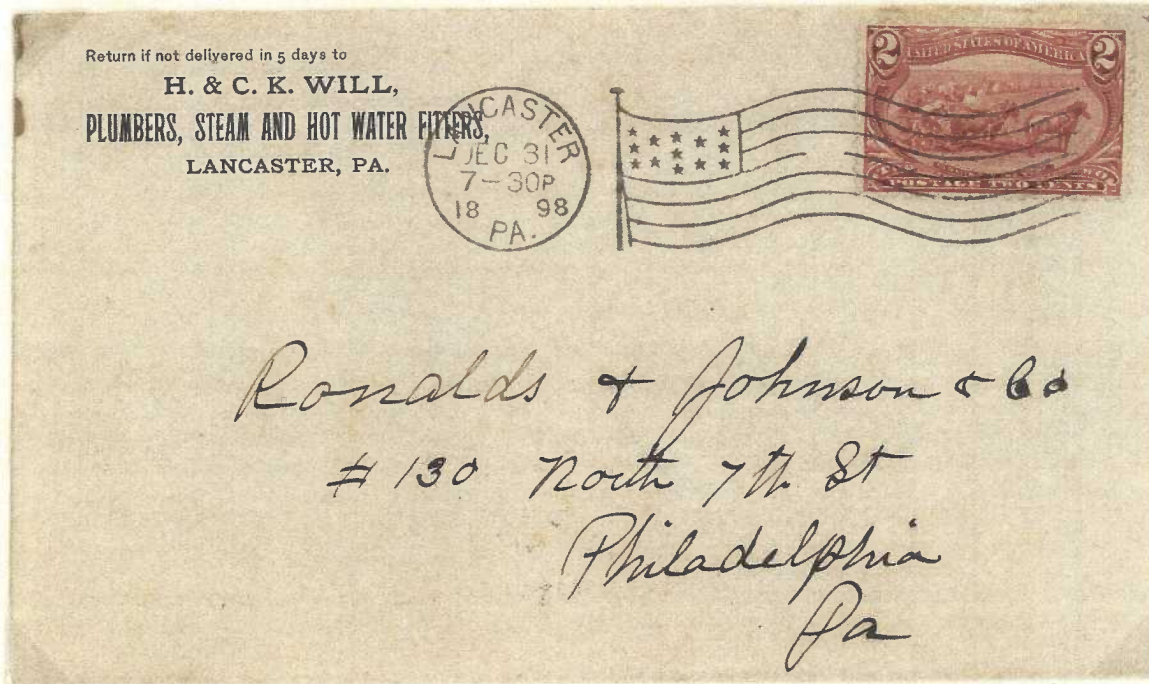 Return if not delivered in 5 days to
H. & C. K. WILL,
PLUMBERS, STEAM AND HOT WATER FITTERS,
LANCASTER, PA.
LANCASTER
DEC 31
7-30P
18 98
PA.
2 2
UNITED STATES OF AMERICA
POSTAGE TWO CENTS
Ronalds & Johnson & Co
# 130 North 7th St
Philadelphia
Pa